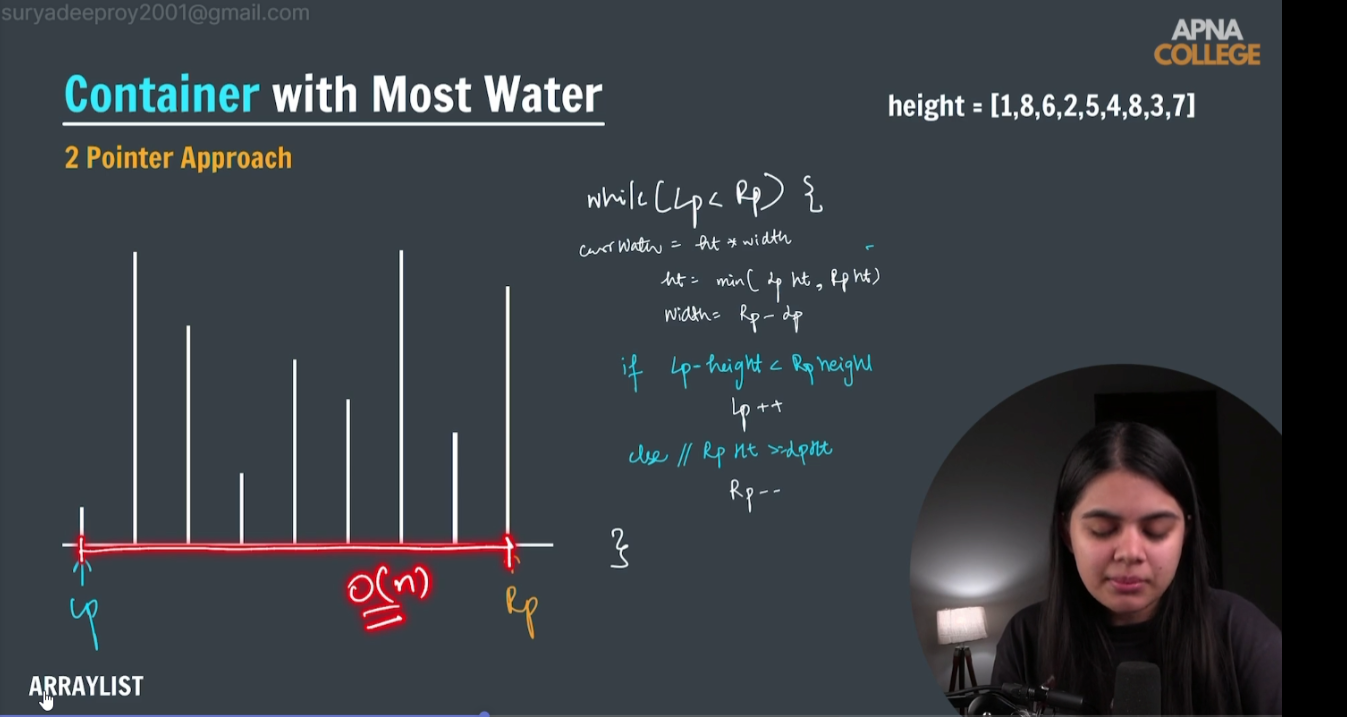 suryadeeproy2001@gmail.com
APNA
COLLEGE
Container with Most Water
height = [1,8,6,2,5,4,8,3,7]
2 Pointer Approach
while(Lp < Rp) {
currWater = ht * width
ht = min( Lp ht, Rp ht)
width = Rp - Lp
if Lp-height < Rp height
Lp++
else // Rp ht >= Lp ht
Rp--
}
O(n)
Lp
Rp
ARRAYLIST